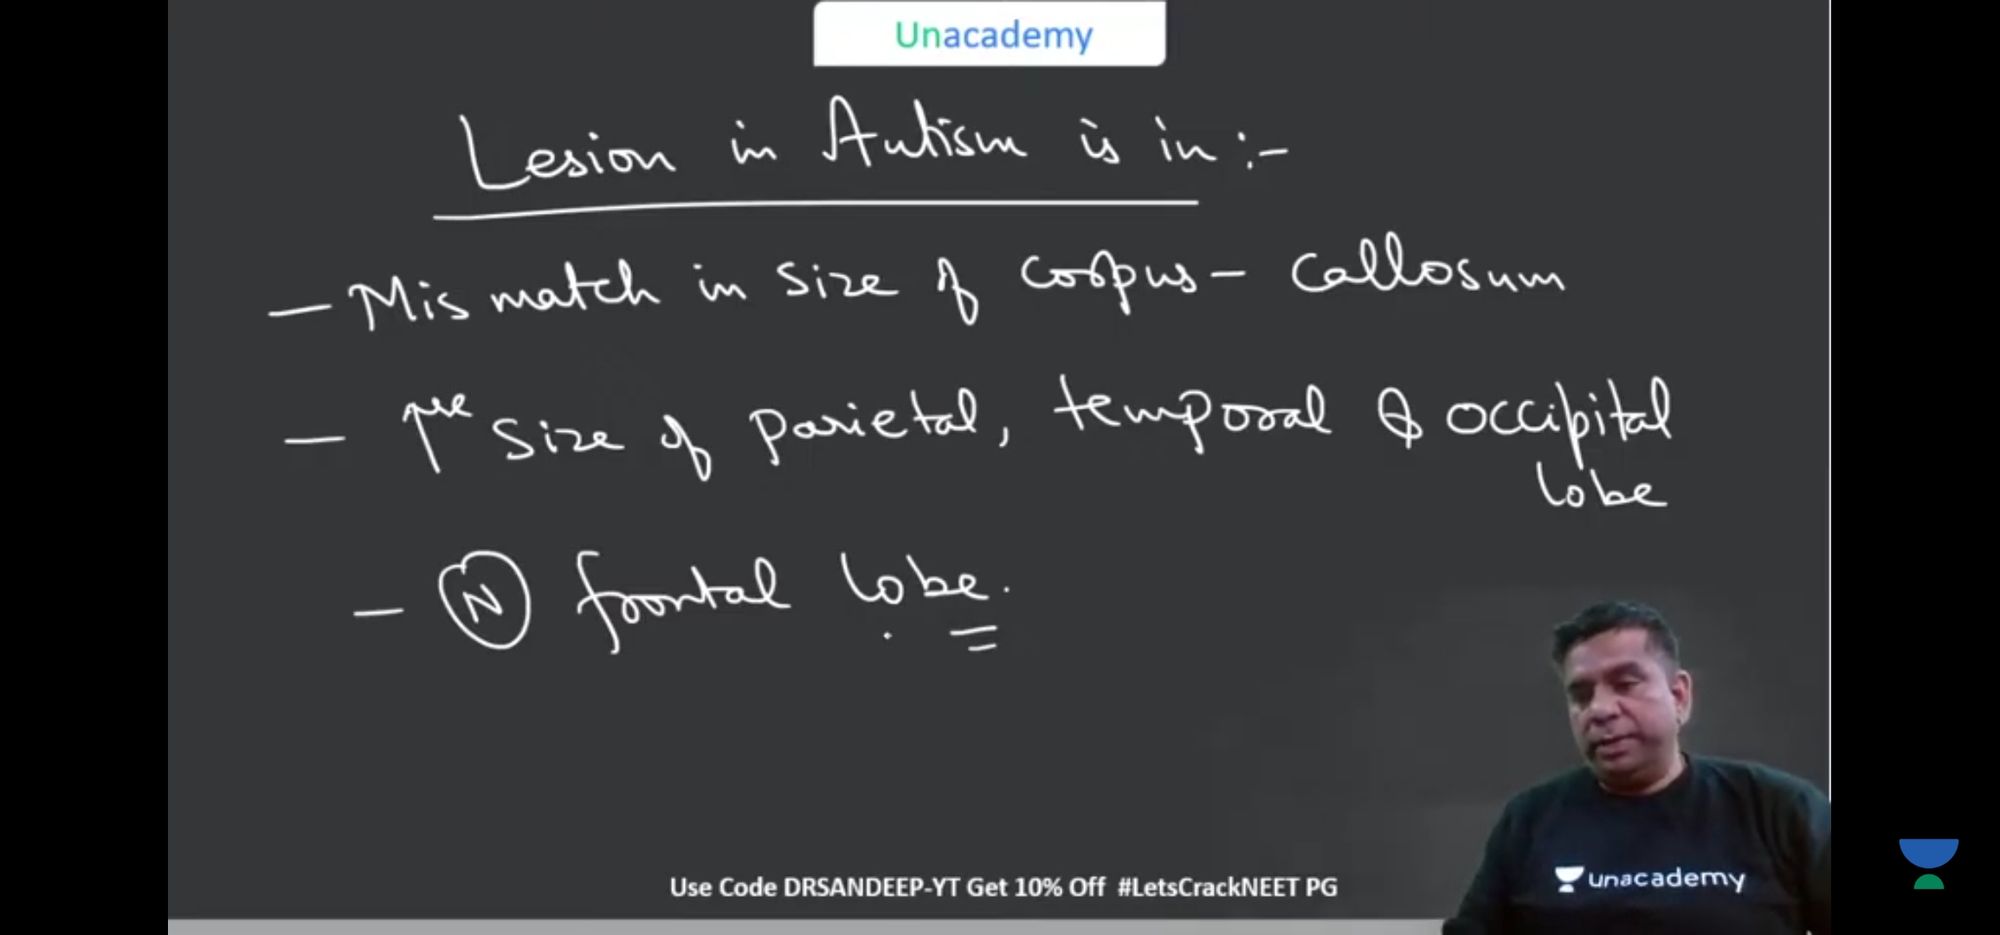 Unacademy
Lesion in Autism is in :-
- Mis match in size of corpus - callosum
- ↑se size of parietal, temporal & occipital
lobe
- N frontal lobe.
unacademy
Use Code DRSANDEEP-YT Get 10% Off #LetsCrackNEET PG